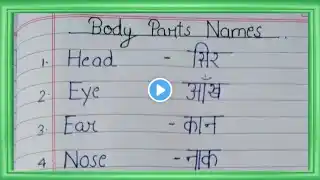 Body Parts Names.
1. Head - सिर
2. Eye आँख
3. Ear - कान
4 Nose - नाक